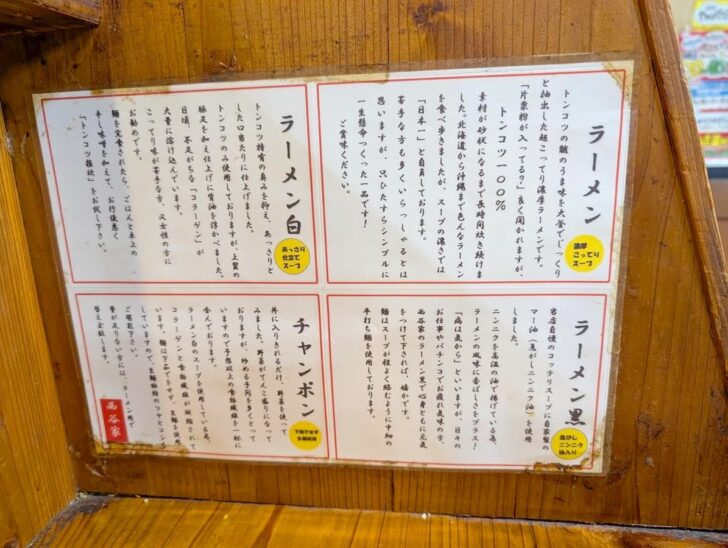 ラーメン
濃厚
こってり
スープ
トンコツの髄のうま味を大釜でじっくり
と抽出した超こってり濃厚ラーメンです。
「片栗粉が入ってる?」良く聞かれますが、
トンコツ一〇〇%
素材が砂状になるまで長時間炊き続けま
した。北海道から沖縄まで色んなラーメン
を食べ歩きましたが、スープの濃さでは
「日本一」と自負しております。
苦手な方も多くいらっしゃるとは
思いますが、只ひたすらシンプルに
一生懸命つくった一品です!
ご賞味ください。
ラーメン白
あっさり
仕立て
スープ
トンコツ特有の臭みを抑え、あっさりと
した口当たりに仕上げました。
トンコツのみ使用しておりますが、上質の
豚足を加え仕上げに背油を浮かべました。
日頃、不足がちな「コラーゲン」が
大量に溶け込んでいます。
こってり味が苦手な方、又女性の方に
お勧めです。
麺を完食されたら、ごはんと卓上の
辛し味噌を加えて、お行儀悪く
「トンコツ雑炊」をお試し下さい。
ラーメン黒
焦がし
ニンニク
油入り
当店自慢のコッテリスープに自家製の
マー油(焦がしニンニク油)を使用
しました。
ニンニクを高温の油で揚げている為、
ラーメンの風味に香ばしさをプラス!
「病は気から」といいますが、日々の
お仕事やパチンコでお疲れ気味の方、
西谷家のラーメン黒で心身ともに元気
をつけて下されば、嬉かです。
麺はスープが程よく絡むように中細の
平打ち麺を使用しております。
チャンポン
下茹でせず
生麺使用
丼に入りきれるだけ、野菜を使って
みました。野菜がてんこ盛りになって
おりますが、炒める手間を多くとって
いますので予想以上の食物繊維が一杯に
含んでおります。
ラーメン白のスープを使用している為、
コラーゲンと食物繊維が凝縮されて
います。麺は下茹でをせず、生麺を使用
していますので、生麺独特のツヤとコシを
ご堪能下さい。
量が足りない方には、ラーメン用で
替え玉致します。
西谷家